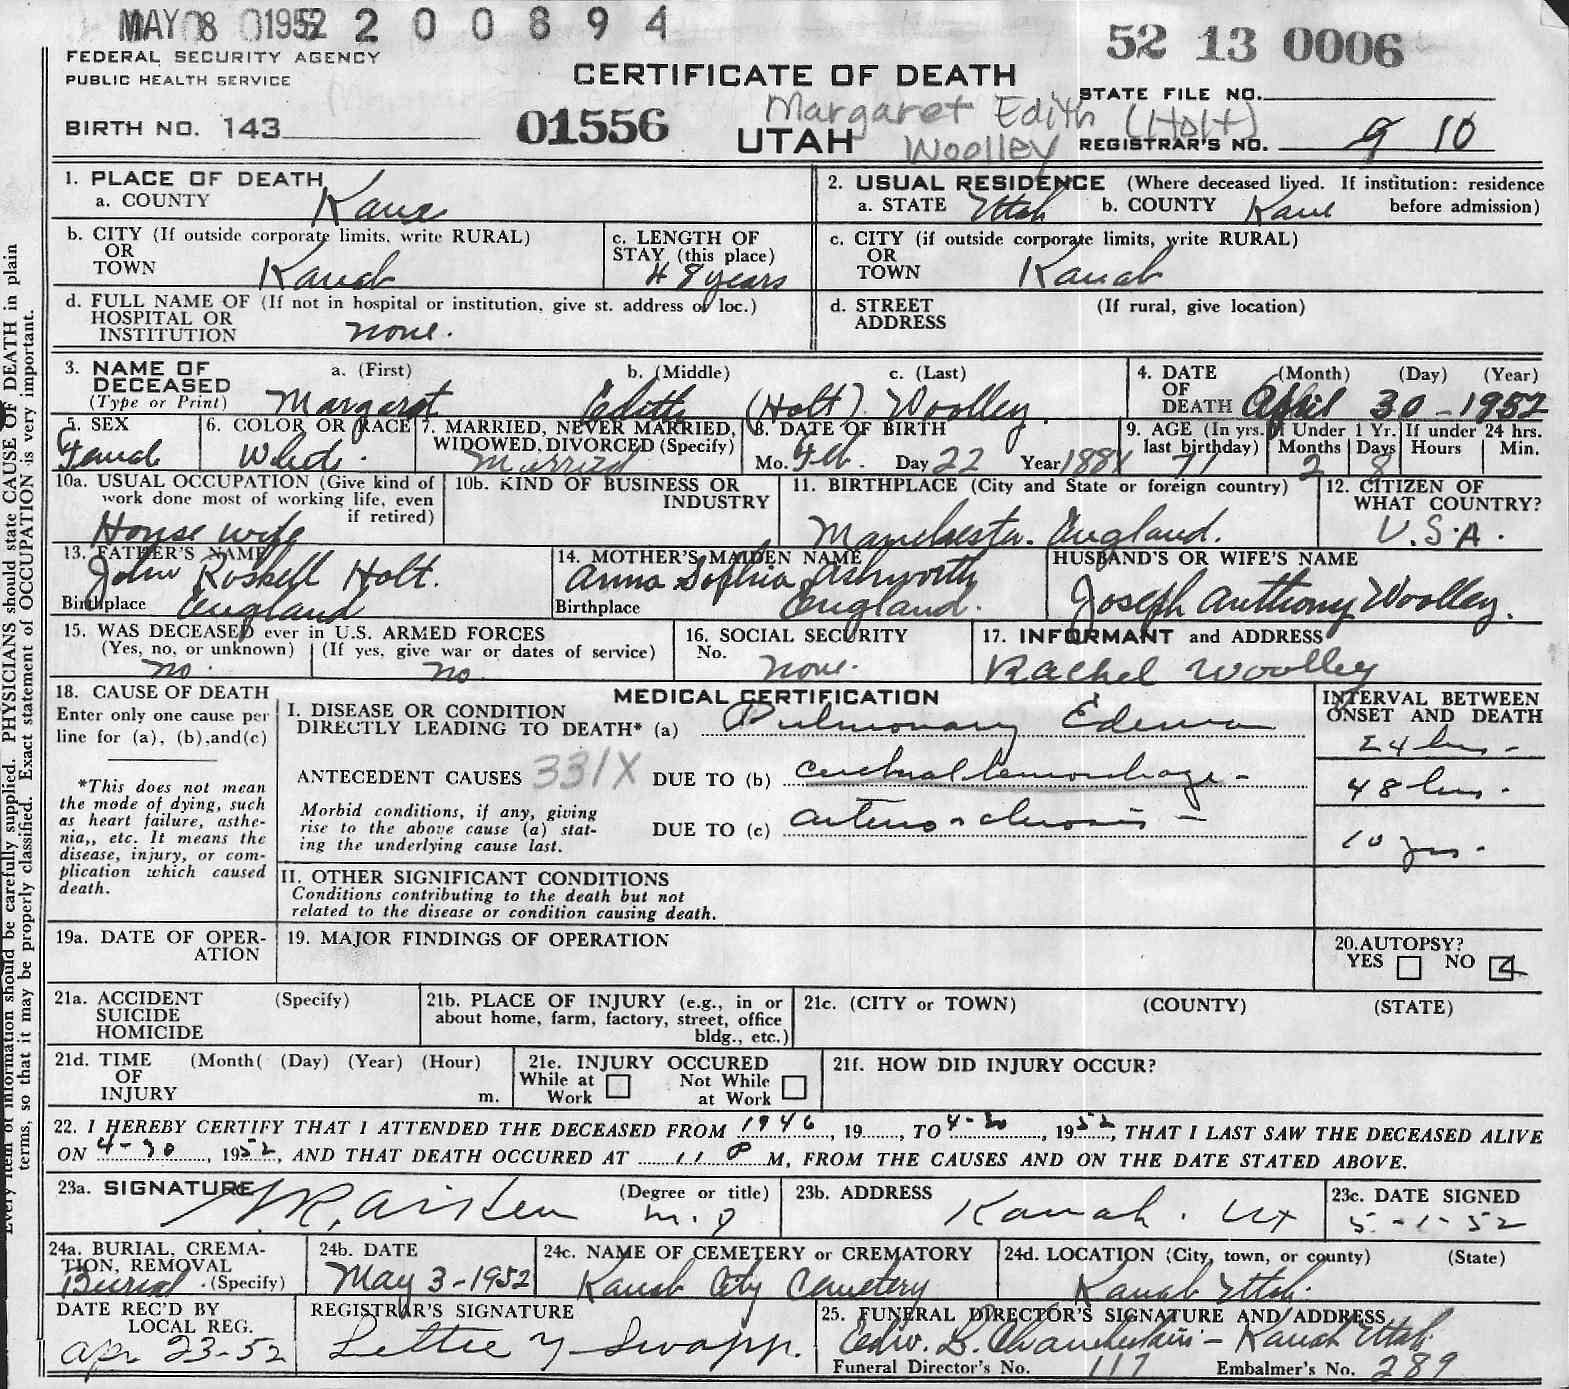 MAY 08 1952 2 0 0 8 9 4
52 13 0006
FEDERAL SECURITY AGENCY
PUBLIC HEALTH SERVICE
CERTIFICATE OF DEATH
STATE FILE NO.
BIRTH NO. 143
01556
UTAH
Margaret Edith (Holt)
Woolley
REGISTRAR'S NO. 9 10
Every item of information should be carefully supplied. PHYSICIANS should state CAUSE OF DEATH in plain
terms, so that it may be properly classified. Exact statement of OCCUPATION is very important.
1. PLACE OF DEATH
a. COUNTY Kane
2. USUAL RESIDENCE (Where deceased lived. If institution: residence
a. STATE Utah b. COUNTY Kane before admission)
b. CITY (If outside corporate limits, write RURAL)
OR
TOWN Kanab
c. LENGTH OF
STAY (this place)
48 years
c. CITY (if outside corporate limits, write RURAL)
OR
TOWN Kanab
d. FULL NAME OF (If not in hospital or institution, give st. address or loc.)
HOSPITAL OR
INSTITUTION none.
d. STREET (If rural, give location)
ADDRESS
3. NAME OF DECEASED
(Type or Print)
a. (First) b. (Middle) c. (Last)
Margaret Edith (Holt) Woolley
4. DATE OF DEATH
(Month) (Day) (Year)
April 30-1952
5. SEX
Female
6. COLOR OR RACE
White.
7. MARRIED, NEVER MARRIED,
WIDOWED, DIVORCED (Specify)
Married
8. DATE OF BIRTH
Mo. Feb. Day 22 Year 1881
9. AGE (In yrs. last birthday)
71
If Under 1 Yr.
Months Days
2 8
If under 24 hrs.
Hours Min.
10a. USUAL OCCUPATION (Give kind of
work done most of working life, even
if retired)
House wife
10b. KIND OF BUSINESS OR
INDUSTRY
11. BIRTHPLACE (City and State or foreign country)
Manchester. England.
12. CITIZEN OF
WHAT COUNTRY?
U.S.A.
13. FATHER'S NAME
John Roskell Holt.
Birthplace England
14. MOTHER'S MAIDEN NAME
Anna Sophia Ashworth
Birthplace England.
HUSBAND'S OR WIFE'S NAME
Joseph Anthony Woolley.
15. WAS DECEASED ever in U.S. ARMED FORCES
(Yes, no, or unknown) (If yes, give war or dates of service)
no. no.
16. SOCIAL SECURITY
No. none.
17. INFORMANT and ADDRESS
Rachel Woolley
18. CAUSE OF DEATH
Enter only one cause per
line for (a), (b), and (c)
*This does not mean
the mode of dying, such
as heart failure, asthe-
nia,, etc. It means the
disease, injury, or com-
plication which caused
death.
MEDICAL CERTIFICATION
INTERVAL BETWEEN
ONSET AND DEATH
I. DISEASE OR CONDITION
DIRECTLY LEADING TO DEATH* (a) Pulmonary Edema
24 hrs-
ANTECEDENT CAUSES 331X DUE TO (b) cerebral hemorrhage-
48 hrs.
Morbid conditions, if any, giving
rise to the above cause (a) stat-
ing the underlying cause last.
DUE TO (c) arterio sclerosis-
10 yrs.
II. OTHER SIGNIFICANT CONDITIONS
Conditions contributing to the death but not
related to the disease or condition causing death.
19a. DATE OF OPER-
ATION
19. MAJOR FINDINGS OF OPERATION
20. AUTOPSY?
YES NO
21a. ACCIDENT (Specify)
SUICIDE
HOMICIDE
21b. PLACE OF INJURY (e.g., in or
about home, farm, factory, street, office
bldg., etc.)
21c. (CITY or TOWN) (COUNTY) (STATE)
21d. TIME (Month( (Day) (Year) (Hour)
OF
INJURY m.
21e. INJURY OCCURED
While at Work Not While at Work
21f. HOW DID INJURY OCCUR?
22. I HEREBY CERTIFY THAT I ATTENDED THE DECEASED FROM 1946, 19....., TO 4-30, 1952, THAT I LAST SAW THE DECEASED ALIVE
ON 4-30, 1952, AND THAT DEATH OCCURED AT 11 P M, FROM THE CAUSES AND ON THE DATE STATED ABOVE.
23a. SIGNATURE (Degree or title)
Aiken M.D
23b. ADDRESS
Kanab. Ut
23c. DATE SIGNED
5-1-52
24a. BURIAL, CREMA-
TION, REMOVAL
Burial. (Specify)
24b. DATE
May 3-1952
24c. NAME OF CEMETERY or CREMATORY
Kanab City Cemetery
24d. LOCATION (City, town, or county) (State)
Kanab Utah.
DATE REC'D BY
LOCAL REG.
Apr 23-52
REGISTRAR'S SIGNATURE
Lettie Y Swapp.
25. FUNERAL DIRECTOR'S SIGNATURE AND ADDRESS
Edw. G. Chamberlain- Kanab Utah.
Funeral Director's No. 117 Embalmer's No. 289